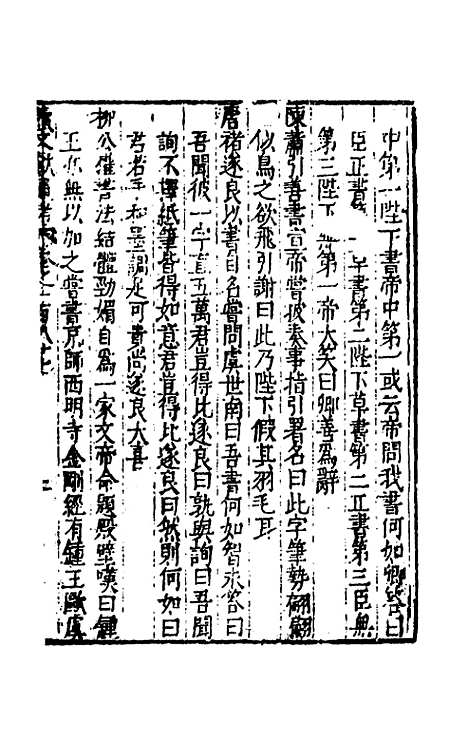 中第一陛下書帝中第一或云帝問我書何如卿答曰
臣正書第 草書第二陛下草書第二正書第三臣無
第三陛下無第一帝大笑曰卿善為辭
陳蕭引善書宣帝嘗披奏事指引署名曰此字筆勢翩翩
似鳥之欲飛引謝曰此乃陛下假其羽毛耳
唐褚遂良以書自名嘗問虞世南曰吾書何如智永答曰
吾聞彼一字直五萬君豈得比遂良曰孰與詢曰吾聞
詢不擇紙筆皆得如意君豈得比遂良曰然則何如曰
君若手和墨調足可貴尚遂良大喜
柳公權書法結體勁媚自為一家文帝命題殿壁嘆曰鍾
王 無以如之嘗書京師西明寺金剛經有鍾王歐虞